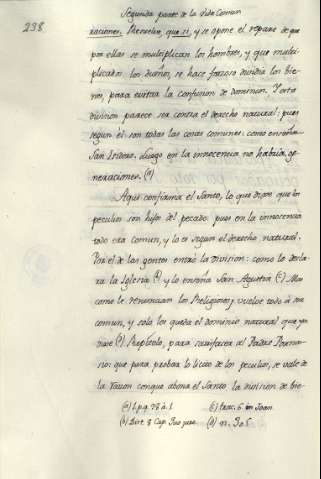 Segunda parte de la Vida Comun
238.
raciones. Resuelve, que si, y se opone el reparo de que
por ellas se multiplican los hombres, y que multi-
plicados los dueños, se hace forzoso dividir los bie-
nes, para evitar la confusion de dominios. Y esta
division parece ser contra el derecho natural; pues
segun èl son todas las cosas comunes: como enseña
San Isidoro. Luego en la innocencia no habria ge-
neraciones. (a)
Aqui confirma el Santo, lo que digo, que los
peculios son hijos del pecado: pues en la innocencia
todo era comun, y lo es segun el derecho natural.
Por el de las gentes entrò la division: como lo decla-
ra la Iglesia (b) y lo enseña San Agustin (c) Mas
como le renuncian los Religiosos, vuelve todo à ser
comun, y solo les queda el dominio natural que ya
dixe (d) Repitolo, para satisfacer al Padre
no: que para probar lo licito de los peculios, se vale de
la razon conque abona el Santo, la division de bie-
(a) 1. p. q. 98 à. 1 (c) trac. 6 in Joan
(b) Dist. 8 Cap. Quo jure (d) n.